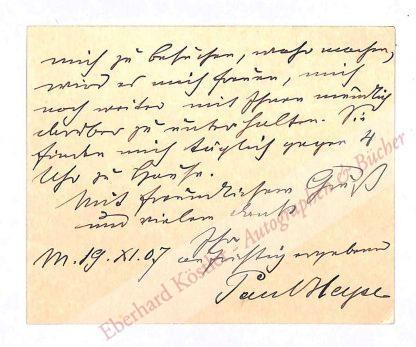 mich zu besuchen, wahr machen,
wird es mich freuen, mich
noch weiter mit Ihnen mündlich
darüber zu unterhalten. Sie
finden mich täglich gegen 4
Uhr zu Hause.
Mit freundlichem Gruß
und vielem Dank
Ihr
M. 19. XI. 07 aufrichtig ergebener
Paul Heyse
Eberhard Köstler Autographen & Bücher